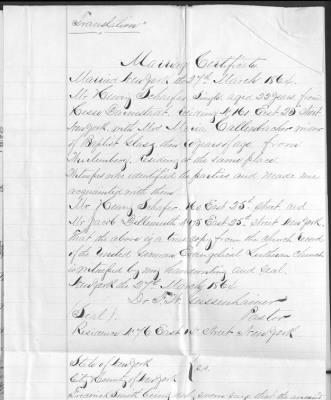 Translation
Marriage Certificate
Married New York the 27th March 1864.
Mr Henry Schaefer Single aged 22 years from
Hesse Darmstadt, residing No 161 East 25 Street
New York, with Mrs Maria
of Baptist years of age from
Residing at the same place.
Witnesses who identified the parties and made me
acquainted with them
Mr Henry Schafer 161 East 25th Street and
Mr Jacob 175 East 25th Street New York.
That the above is a true copy from the Church record
of the United German Evangelical Lutheran Church
is certified by my handwriting and seal.
New York the 27th March 1864
Dr F. W. Geissenhainer
Seal). Pastor
Residence No 76 East 14 Street New York
State of New York
City County of New York } ss.
Frederick Smith being duly sworn says that the